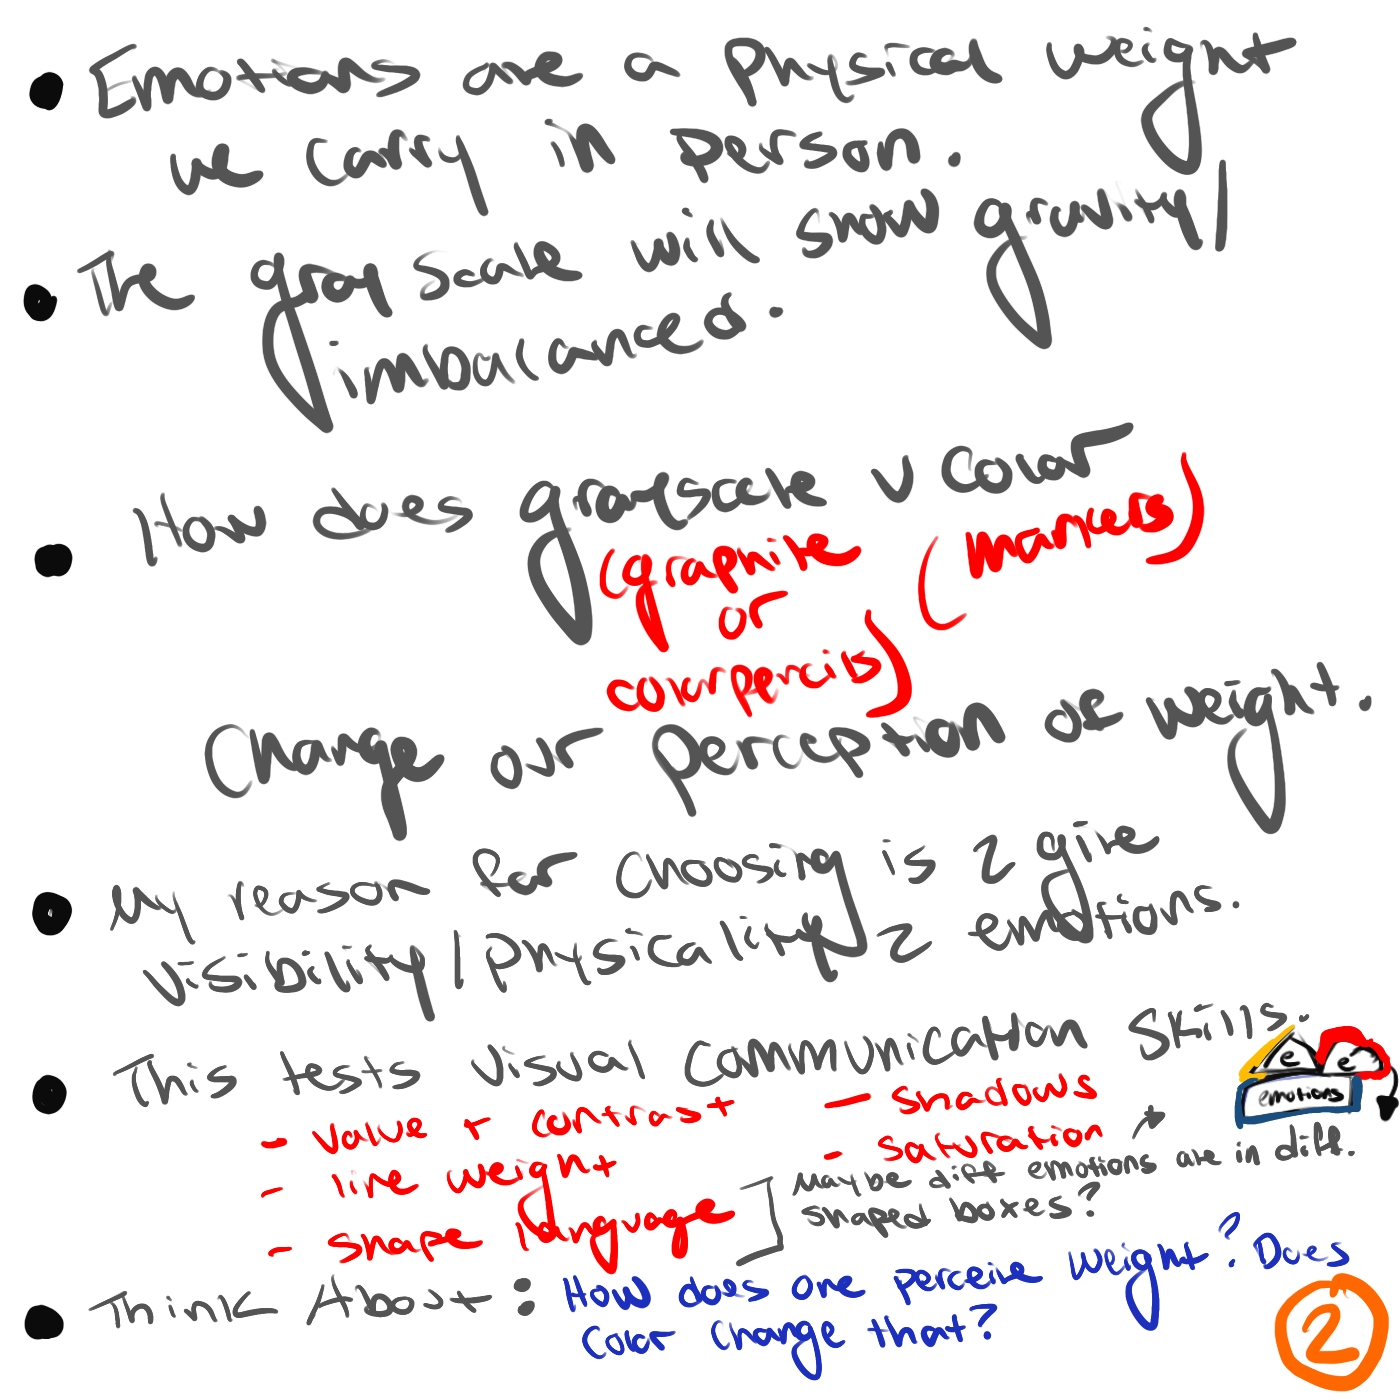 Emotions are a physical weight
we carry in person.
The gray scale will show gravity/
imbalanced.
How does grayscale v color
(graphite (markers)
or
colorpencils)
Change our perception of weight.
My reason for choosing is 2 give
visibility/physicality 2 emotions.
This tests visual communication skills.
- value + contrast - shadows
- line weight - saturation
- shape language
Maybe diff emotions are in diff.
shaped boxes?
e e
emotions
Think About: How does one perceive weight? Does
color change that?
2